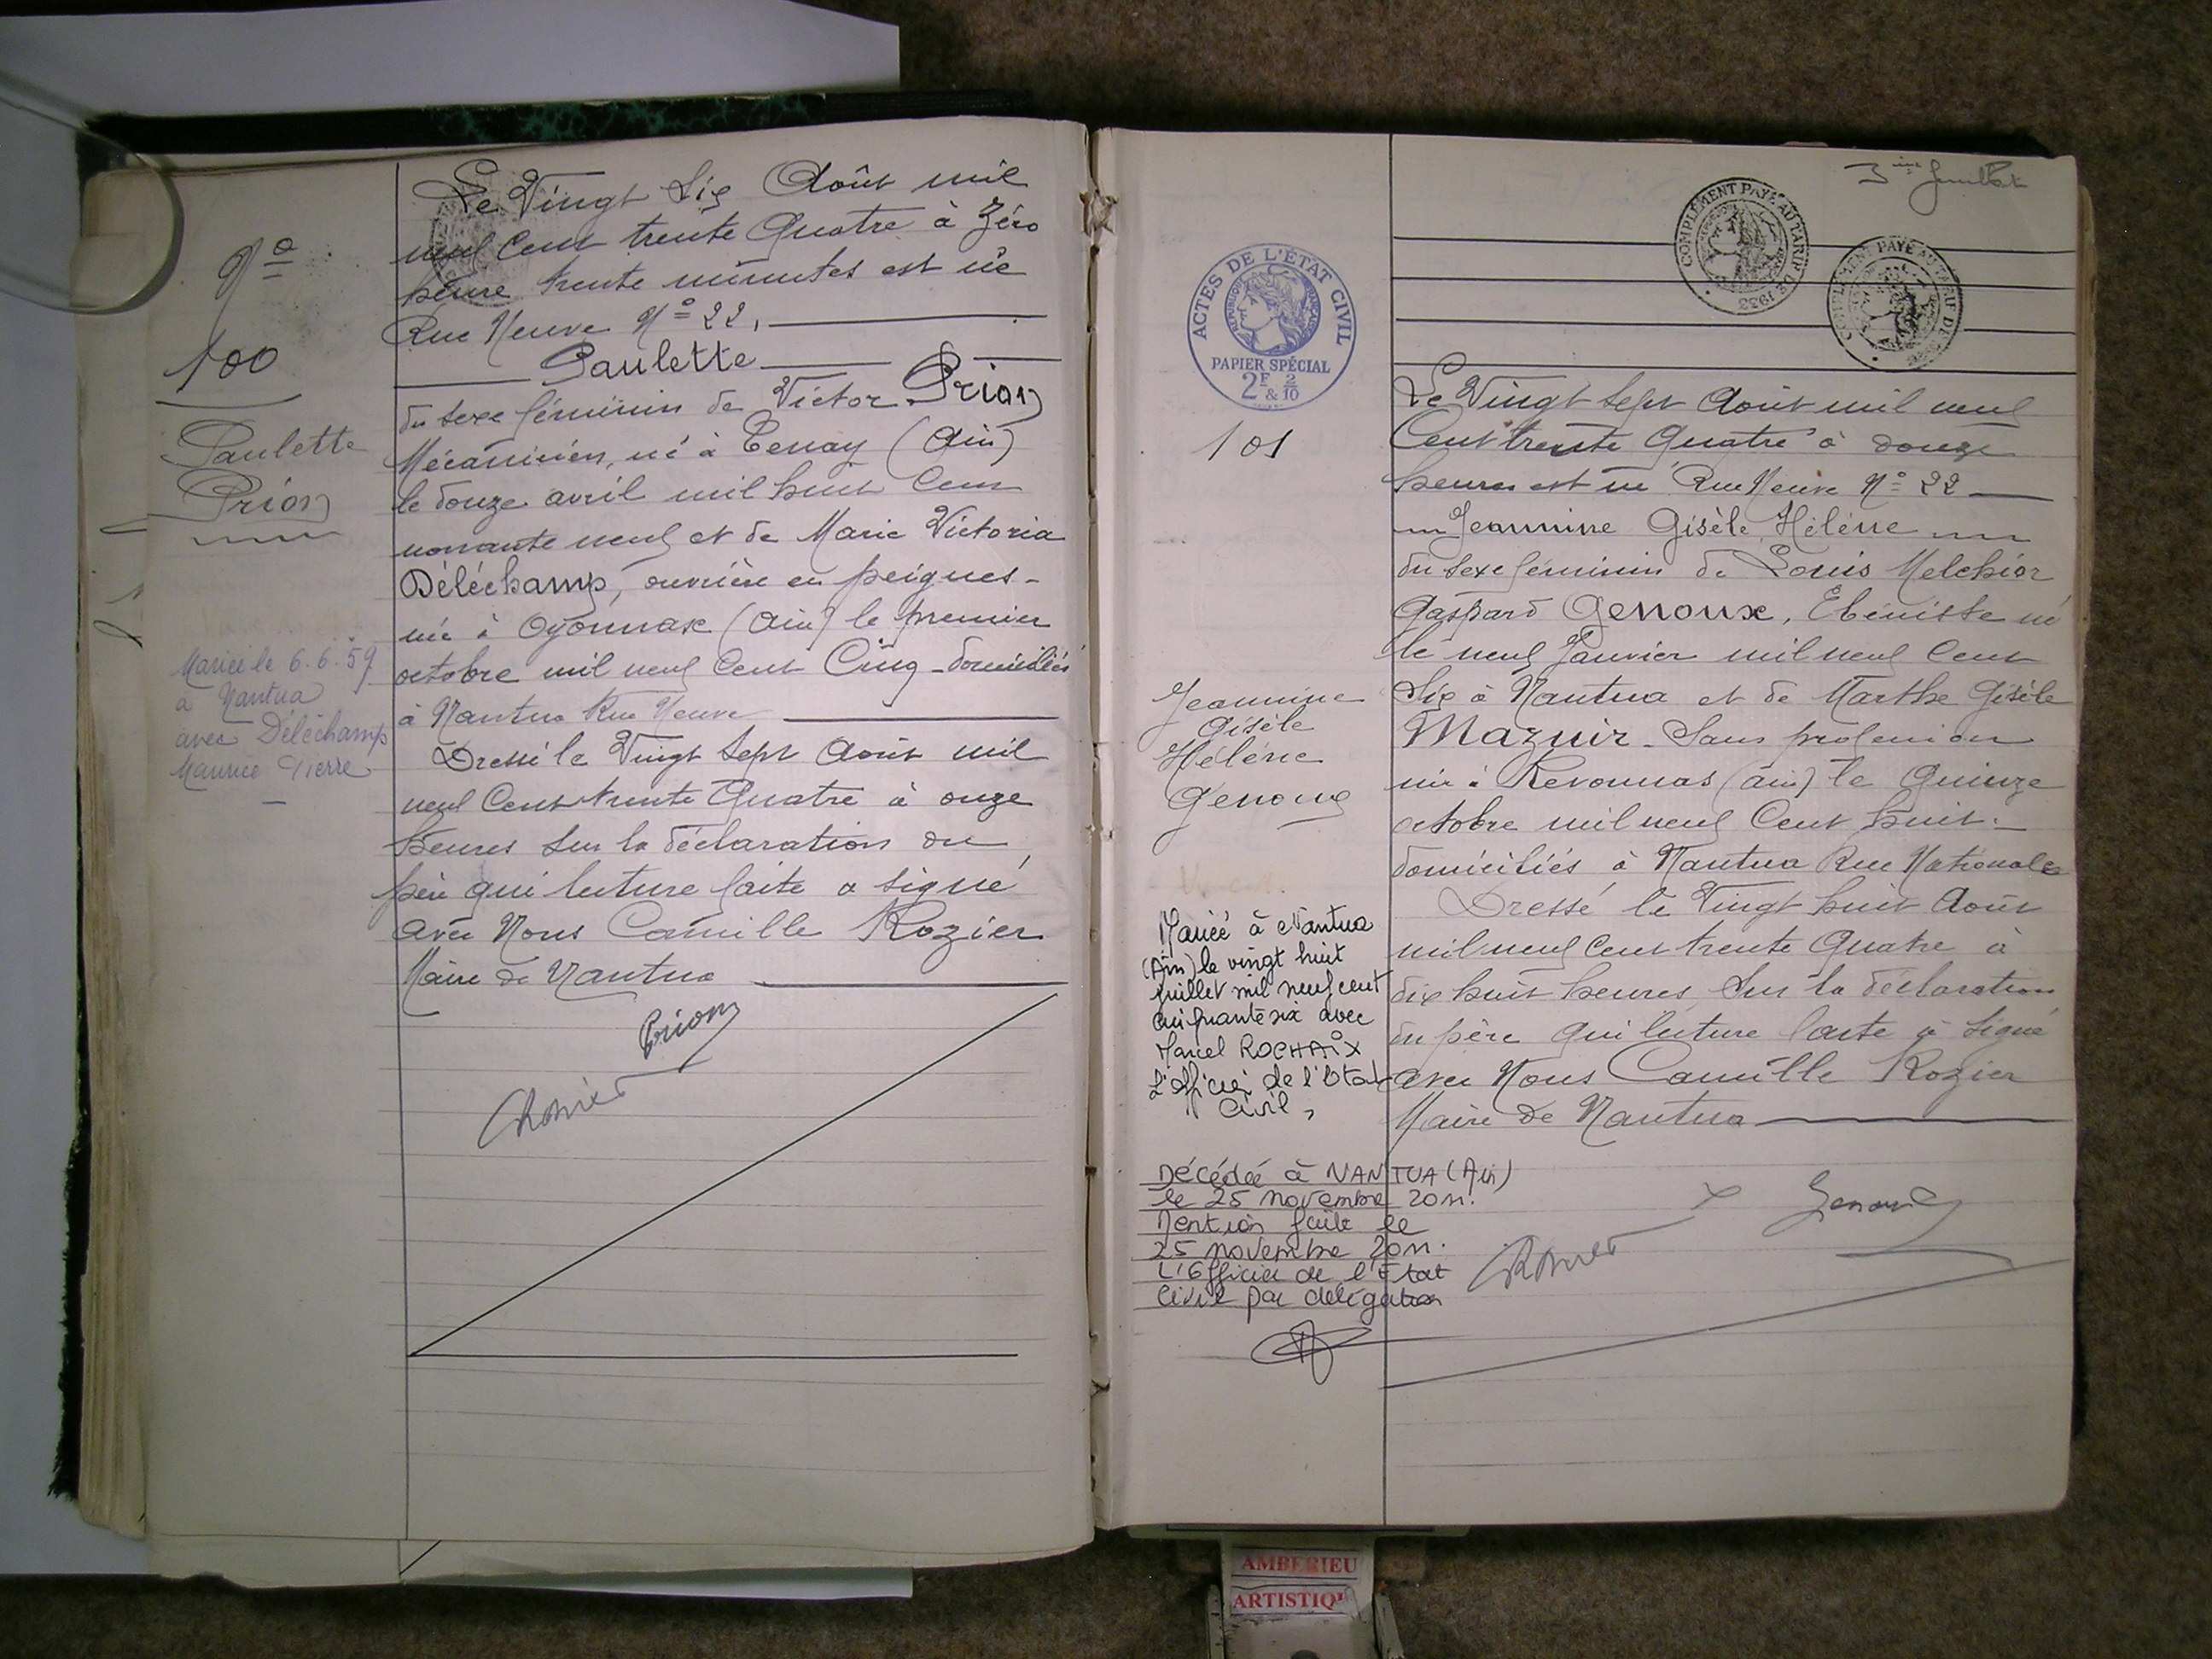 Nº
100
Paulette
Prion
Mariée le 6.6.59
à Nantua
avec Déléchamp
Maurice Pierre
Le Vingt Six Août mil
neuf Cent trente Quatre à Zéro
heure trente minutes est née
Rue Neuve Nº 22,
Paulette
du sexe féminin de Victor Prion
Mécanicien, né à Tenay (Ain)
le douze avril mil huit Cent
nonante neuf et de Marie Victoria
Déléchamp, ouvrière en peignes -
née à Oyonnax (Ain) le premier
octobre mil neuf Cent Cinq - domiciliés
à Nantua Rue Neuve
Dressé le Vingt Sept Août mil
neuf Cent trente Quatre à onze
heures Sur la déclaration du
père qui lecture faite a signé
avec Nous Camille Rozier
Maire de Nantua
Prion
Rozier
3ème feuillet
COMPLÉMENT PAYÉ AU TARIF DE 1933
COMPLÉMENT PAYÉ AU TARIF DE 1933
ACTES DE L'ÉTAT CIVIL
RÉPUBLIQUE FRANÇAISE
PAPIER SPÉCIAL
2F & 2/10
101
Jeannine
Gisèle
Hélène
Genoux
Mariée à Nantua
(Ain) le vingt huit
juillet mil neuf cent
cinquante six avec
Marcel ROCHAIX
L'officier de l'Etat
Civil,
Décédée à NANTUA (Ain)
le 25 novembre 2011.
Mention faite le
25 novembre 2011.
L'Officier de l'Etat
Civil par délégation
Le Vingt Sept Août mil neuf
Cent trente Quatre à douze
heures est né Rue Neuve Nº 22
Jeannine Gisèle Hélène
du sexe féminin de Louis Melchior
Gaspard Genoux, Ebéniste né
le neuf Janvier mil neuf Cent
Six à Nantua et de Marthe Gisèle
Mazuir - Sans profession
née à Revonnas (Ain) le Quinze
octobre mil neuf Cent huit -
domiciliés à Nantua Rue Nationale
Dressé le Vingt huit Août
mil neuf Cent trente Quatre à
dix huit heures Sur la déclaration
du père qui lecture faite a signé
avec Nous Camille Rozier
Maire de Nantua
Genoux
Rozier
AMBERIEU
ARTISTIQU